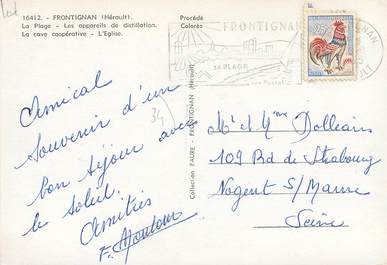 16412. - FRONTIGNAN (Hérault).
La Plage - Les appareils de distillation.
La cave coopérative - L'Eglise.
Procédé
Colorès
FRONTIGNAN
SA PLAGE
Amical
Souvenir d'un
bon séjour avec
le soleil.
Amitiés
34
Collection FAURE - FRONTIGNAN (Hérault)
Mr et Mme Dolleans
109 Bd de Strasbourg
Nogent S/Marne
Seine